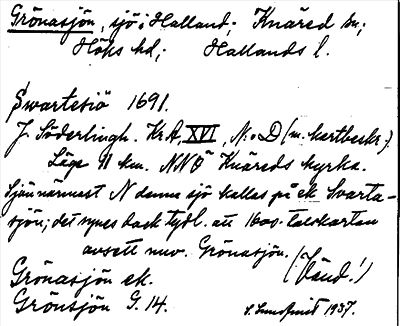 Grönasjön, sjö i Halland; Knäred sn;
Höks hd; Hallands l.
Swartesiö 1691.
J. Söderlingh. Kr.A, XVI, N:o D (m. kartbeskr.)
Läge 11 km. NNÖ Knäreds kyrka.
Sjön närmast N denna sjö kallas på ek Svarta-
sjön; det synes dock tydl. att 1600-talskartan
avsett nuv. Grönasjön.
(Vänd!)
Grönasjön ek.
Grönsjön G. 14.
S. Lundquist 1937.